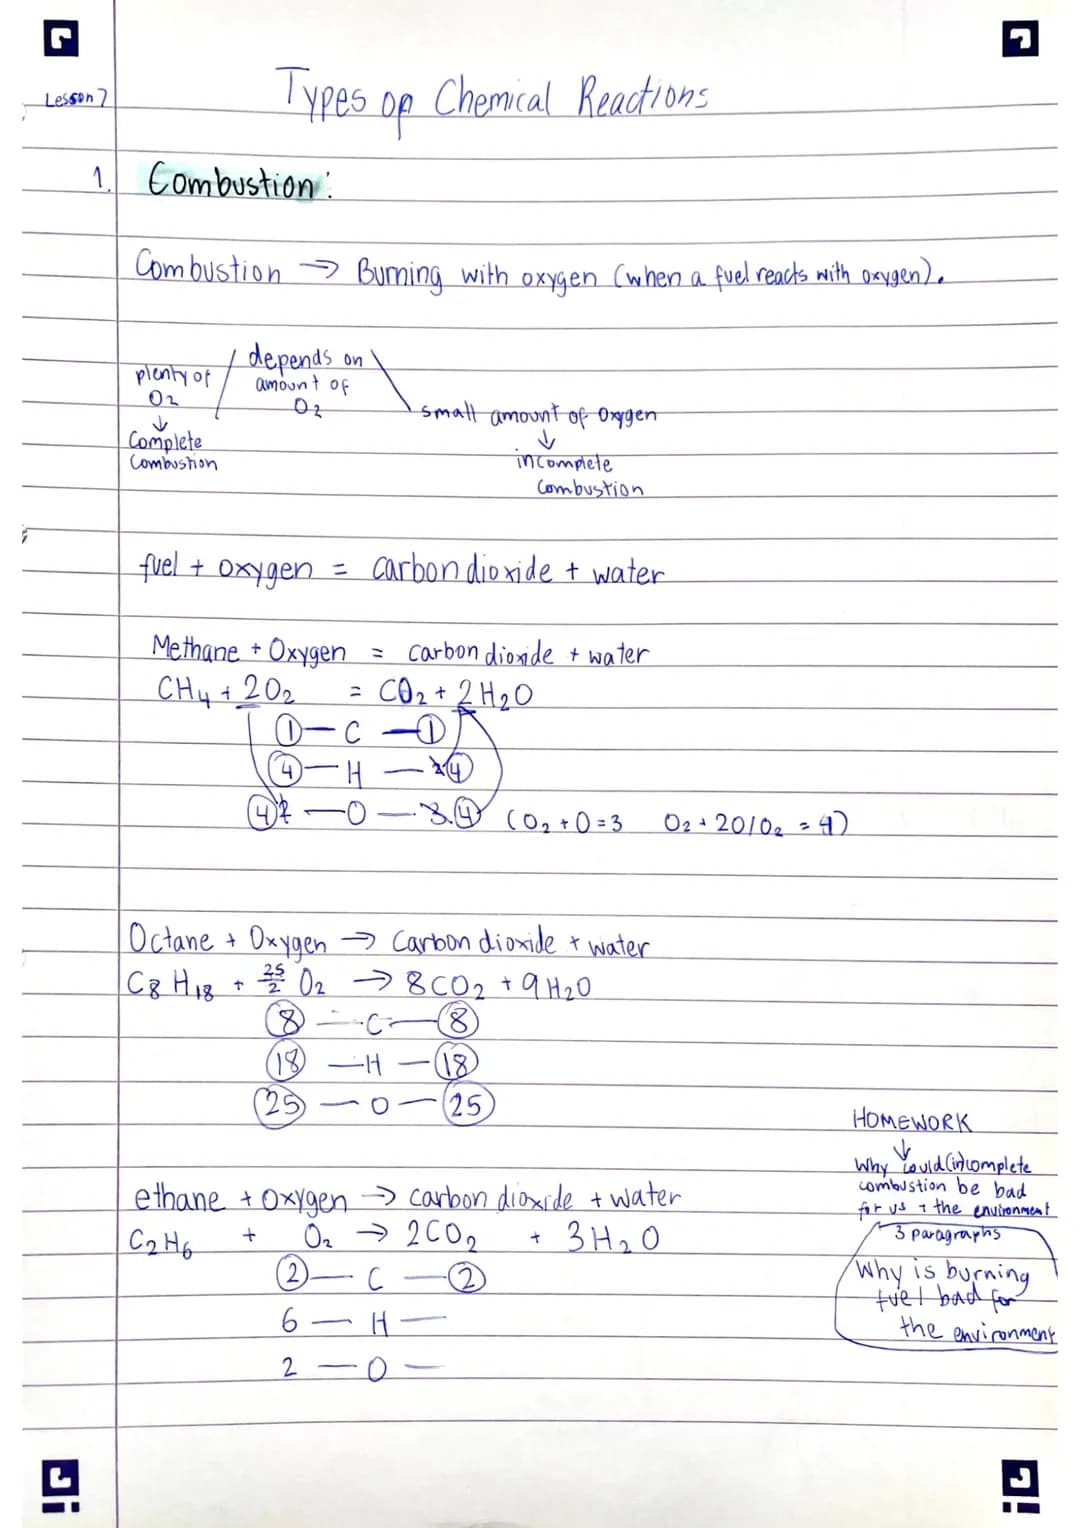 Lesson 7
Types of Chemical Reactions
1. Combustion:
Combustion → Burning with oxygen (when a fuel reacts with oxygen).
depends on
amount of
O2
plenty of
O2
↓
Complete
Combustion
small amount of Oxygen
↓
incomplete
Combustion
fuel + oxygen = carbon dioxide + water
Methane + Oxygen = carbon dioxide + water
CH4 + 2O2 = CO2 + 2H2O
1 — C — 1
4 — H — 2 4
4 2 — O — 3. 4 (O2 + O = 3 O2 + 2O/O2 = 4)
Octane + Oxygen → Carbon dioxide + water
C8H18 + 25/2 O2 → 8CO2 + 9H2O
8 — C — 8
18 — H — 18
25 — O — 25
ethane + oxygen → carbon dioxide + water
C2H6 + O2 → 2CO2 + 3H2O
2 — C — 2
6 — H —
2 — O —
HOMEWORK
↓
Why could (in)complete
combustion be bad
for us + the environment
3 paragraphs
Why is burning
fuel bad for
the environment